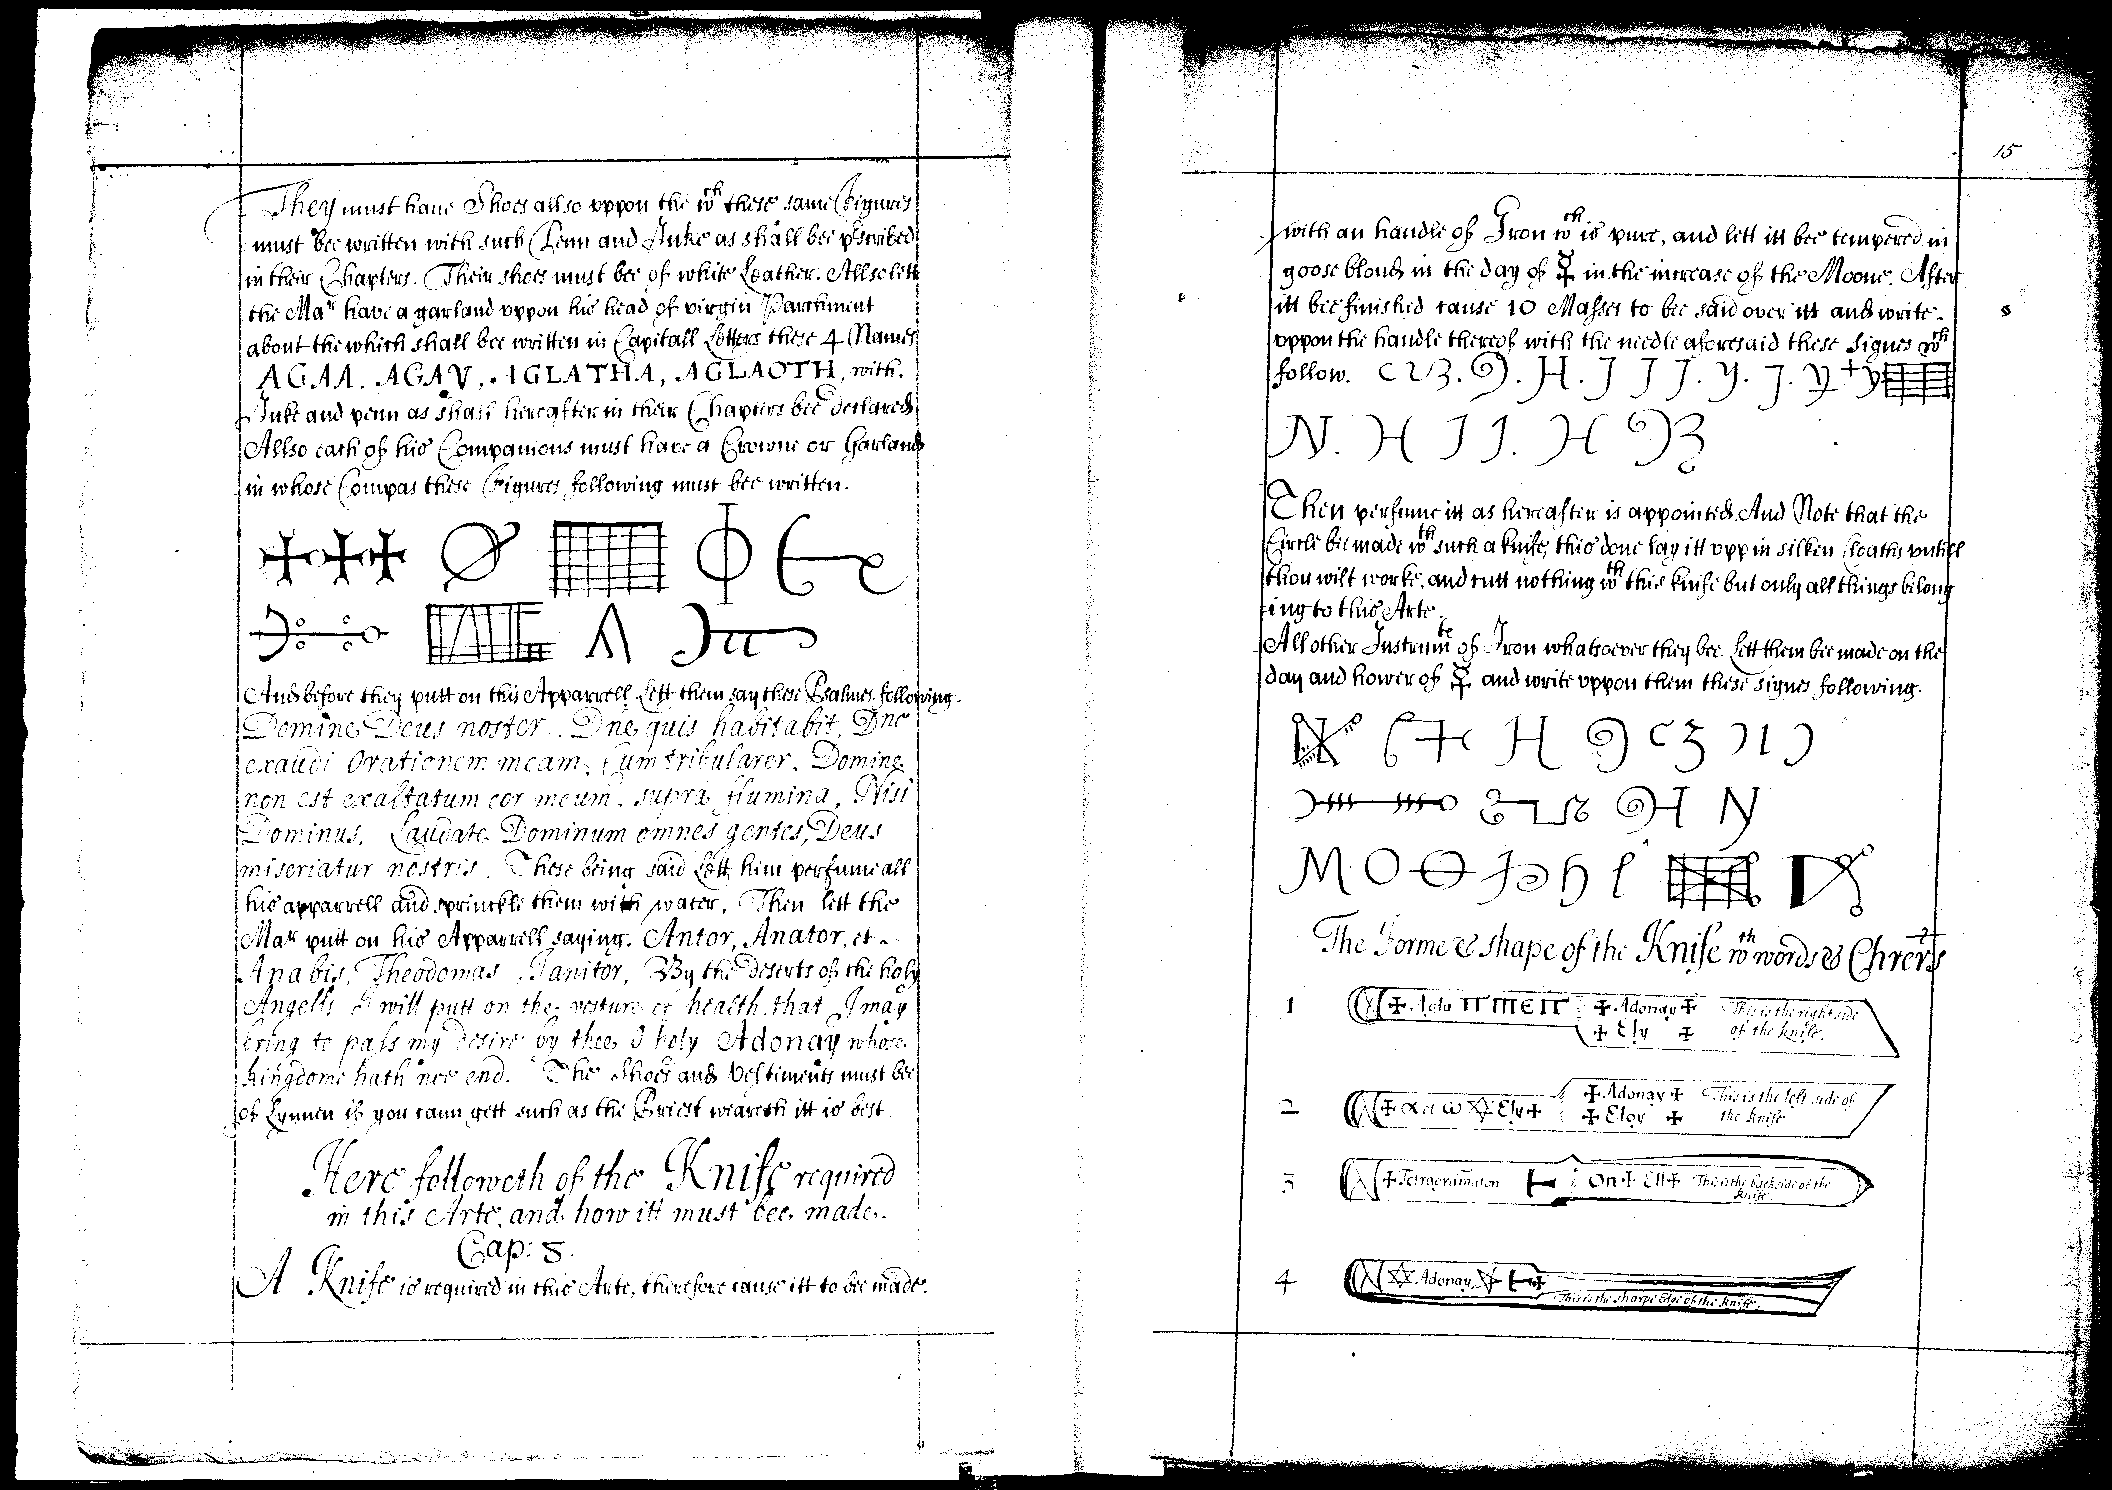 They must have Shoes allso uppon the wch these same Figures
must bee written with such Penn and Inke as shall bee p'scribed
in their Chapters. Their shoes must bee of white Leather. Allso lett
the Mar have a garland uppon his head of virgin Parchment
about the which shall bee written in Capitall Letters these 4 Names
AGAA. AGAV, . AGLATHA, AGLAOTH, with.
Inke and penn as shall hereafter in their Chapters bee declared
Allso each of his Companions must have a Crowne or Garland
in whose Compas these Figures following must bee written.
And before they putt on this Apparrell Lett them say these Psalmes following.
Domine Deus noster. Dne quis habitabit, Dne
exaudi Orationem meam, Cum tribularer. Domine
non est exaltatum cor meum. supra flumina, Nisi
Dominus, Laudate Dominum omnes gentes, Deus
miseriatur nostris. These being said Lett him perfume all
his apparrell and sprinckle them with water. Then lett the
Mar putt on his Apparrell saying. Antor, Anator, et
Anabis, Theodomas Janitor, By the deserts of the holy
Angells I will putt on the vesture of health that I may
bring to pass my desire by thee O holy Adonay whose
kingdome hath noe end. The Shoes and Vestiments must bee
of Lynnen if you cann gett such as the Priest weareth itt is best.
Here followeth of the Knife required
in this Arte, and how itt must bee made.
Cap: 8.
A Knife is required in this Arte, therefore cause itt to bee made.
15
with an handle of Iron wch is pure, and lett itt bee tempered in
goose bloud in the day of ☿ in the increase of the Moone. After
itt bee finished cause 10 Masses to bee said over itt and write
uppon the handle thereof with the needle aforesaid these signes wch
follow.
Then perfume itt as hereafter is appointed. And Note that the
Circle bee made wth such a knife, this done lay itt upp in silken Cloaths untill
thou wilt worke, and cutt nothing wth this knife but only all things belong
ing to this Arte.
All other Instrumte of Iron whatsoever they bee Lett them bee made on the
day and hower of ☿ and write uppon them these signes following.
The Forme & shape of the Knife wth words & Chrers
1 ✠ Agla ✠ Adonay ✠ This is the right side
✠ Ely ✠ of the knife.
2 ✠ α ω ✡ Ely ✠ ✠ Adonay ✠ This is the left side of
✠ Eloy ✠ the knife
3 ✠ Tetragramaton On ✠ Ell ✠ This is the backside of the
knife.
4 ✡ Adonay
This is the sharpe edge of the knife.